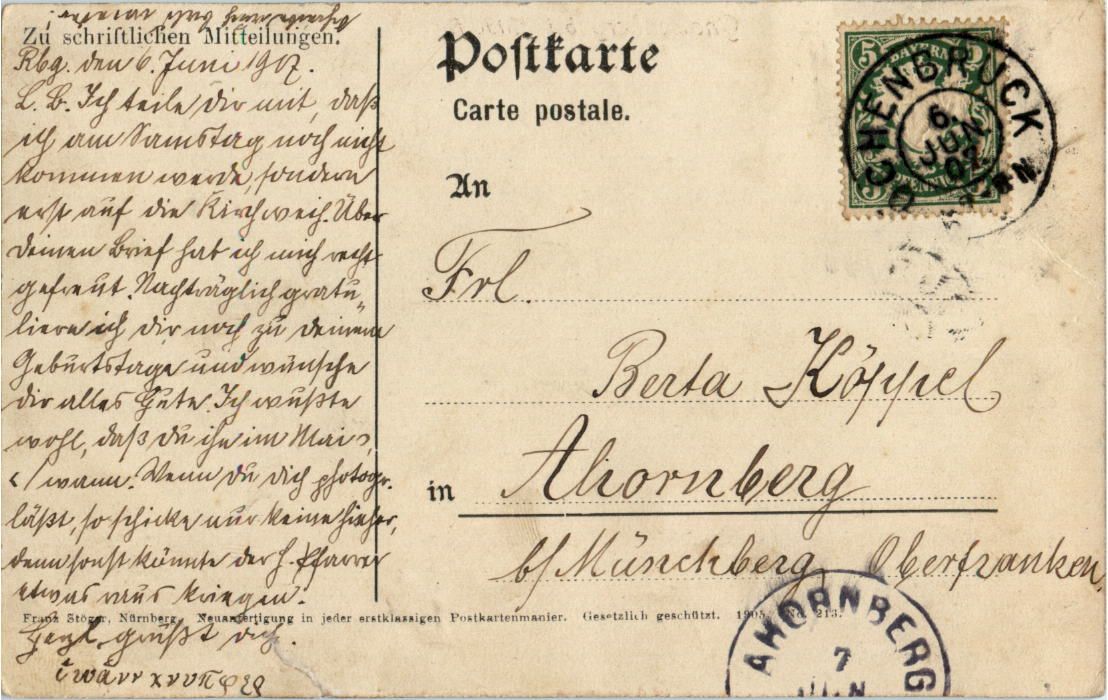 Zu schriftlichen Mitteilungen.
Rbg. den 6. Juni 1907.
L. B. Ich teile dir mit, daß
ich am Samstag noch nicht
kommen werde, sondern
erst auf die Kirchweih. Über
deinen Brief hab ich mich recht
gefreut. Nachträglich gratu-
liere ich dir noch zu deinem
Geburtstage und wünsche
dir alles Gute. Ich wußte
wohl, daß du ihn im Mai,
wann. Wenn du dich photogr.
läßt, so schicke nur keine hieher,
denn sonst könnte der H. Pfarrer
etwas raus kriegen.
Herzl. grüßt dich
Postkarte
Carte postale.
An
Frl.
Berta Köppel
in Ahornberg
b/ Münchberg Oberfranken.
Franz Stöger, Nürnberg. Neuanfertigung in jeder erstklassigen Postkartenmanier. Gesetzlich geschützt. 1905. No. 213.
5 BAYERN
PFENNIG
OCHENBRUCK
6.
JUN.
07.
AHORNBERG
7
JUN.